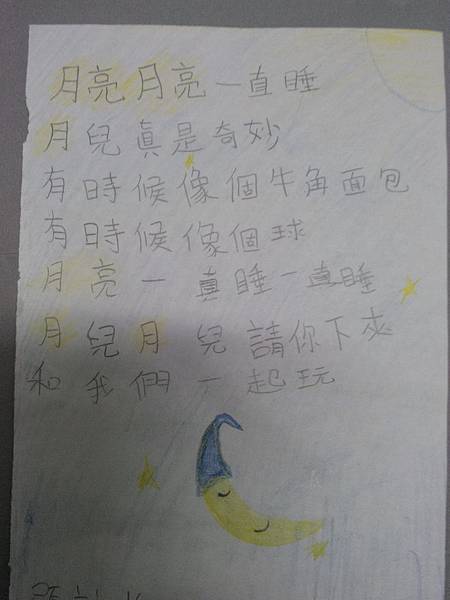 月亮月亮一直睡
月兒真是奇妙
有時候像個牛角面包
有時候像個球
月亮一真睡一直睡
月兒月兒請你下來
和我們一起玩